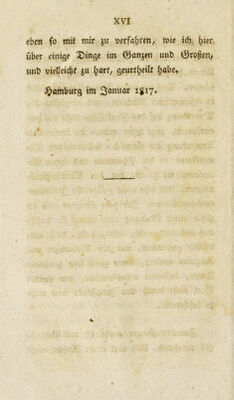 XVI
eben so mit mir zu verfahren, wie ich hier
über einige Dinge im Ganzen und Großen,
und vielleicht zu hart, geurtheilt habe.
Hamburg im Januar 1817.